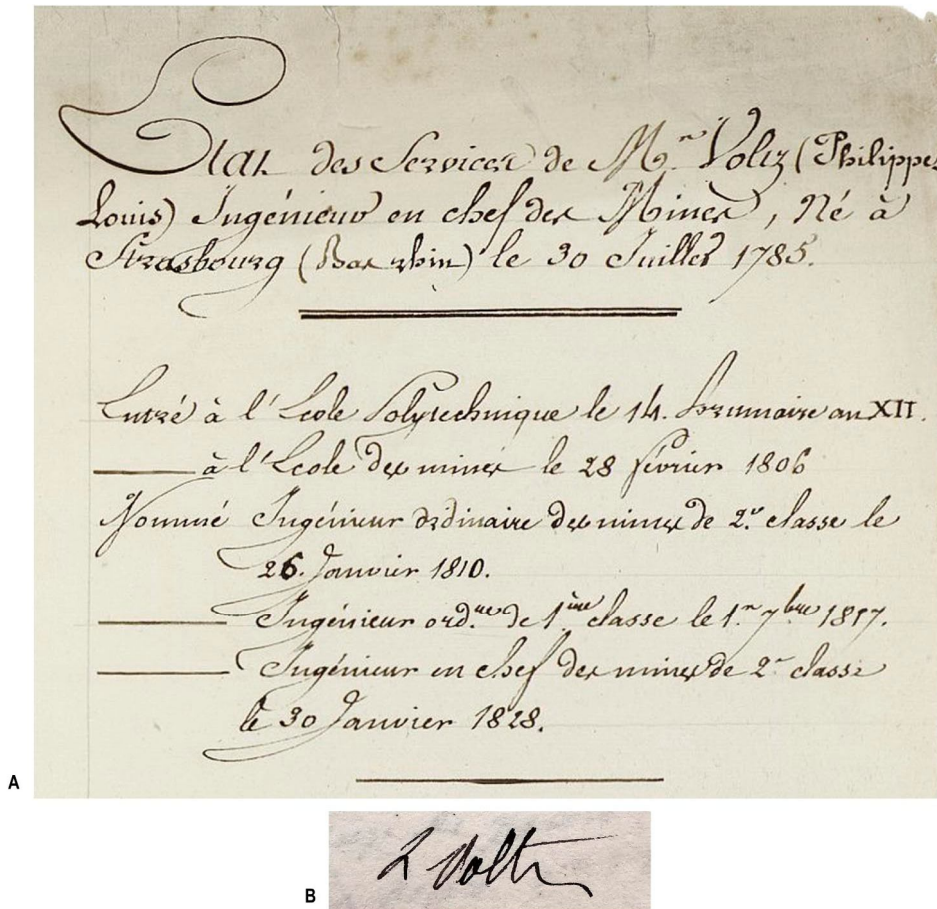 Etat des Services de Mr. Voltz (Philippes
Louis) Ingénieur en chef des Mines, Né à
Strasbourg (Bas rhin) le 30 Juillet 1785.
Entré à l'Ecole Polytechnique le 14. brumaire an XII.
à l'Ecole des mines le 28 février 1806
Nommé Ingénieur ordinaire des mines de 2e. classe le
26. Janvier 1810.
Ingénieur ord.re de 1ère classe le 1er 7bre 1817.
Ingénieur en chef des mines de 2e classe
le 30 Janvier 1828.
A
L Voltz
B